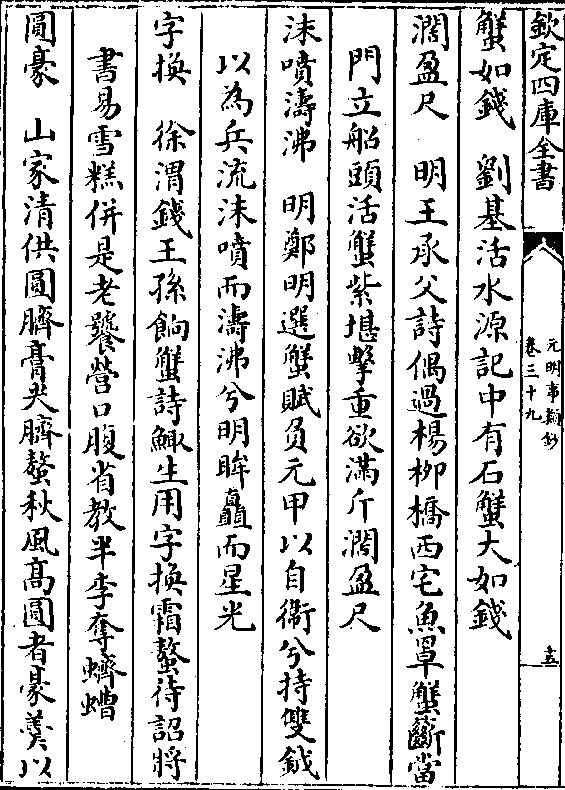 欽定四庫全書
元明事類鈔
卷三十九
十五
蟹如錢　劉基活水源記中有石蟹大如錢
濶盈尺　明王承父詩偶過楊柳橋西宅魚罩蟹籪當
門立船頭活蟹紫堪擊重欲滿斤濶盈尺
沫噴濤沸　明鄭明選蟹賦負元甲以自衞兮持雙鉞
以為兵流沫噴而濤沸兮明眸矗而星光
字換　徐渭錢王孫餉蟹詩鯫生用字換霜螯待詔將
書易雪糕併是老饕營口腹省教半李奪蠐螬
圓豪　山家清供圓臍膏尖臍螯秋風高圓者豪羮以